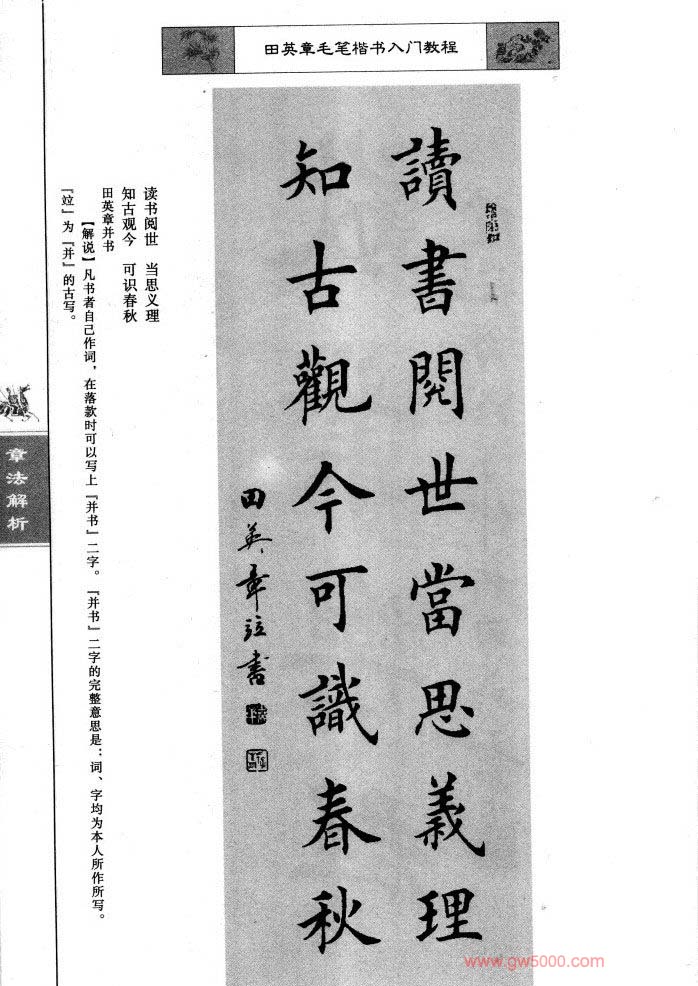 田英章毛笔楷书入门教程
讀書閱世當思義理
知古觀今可識春秋
田英章竝書
读书阅世 当思义理
知古观今 可识春秋
田英章并书
【解说】凡书者自己作词，在落款时可以写上『并书』二字。『并书』二字的完整意思是：词、字均为本人所作所写。
『竝』为『并』的古写。
章法解析
www.gw5000.com